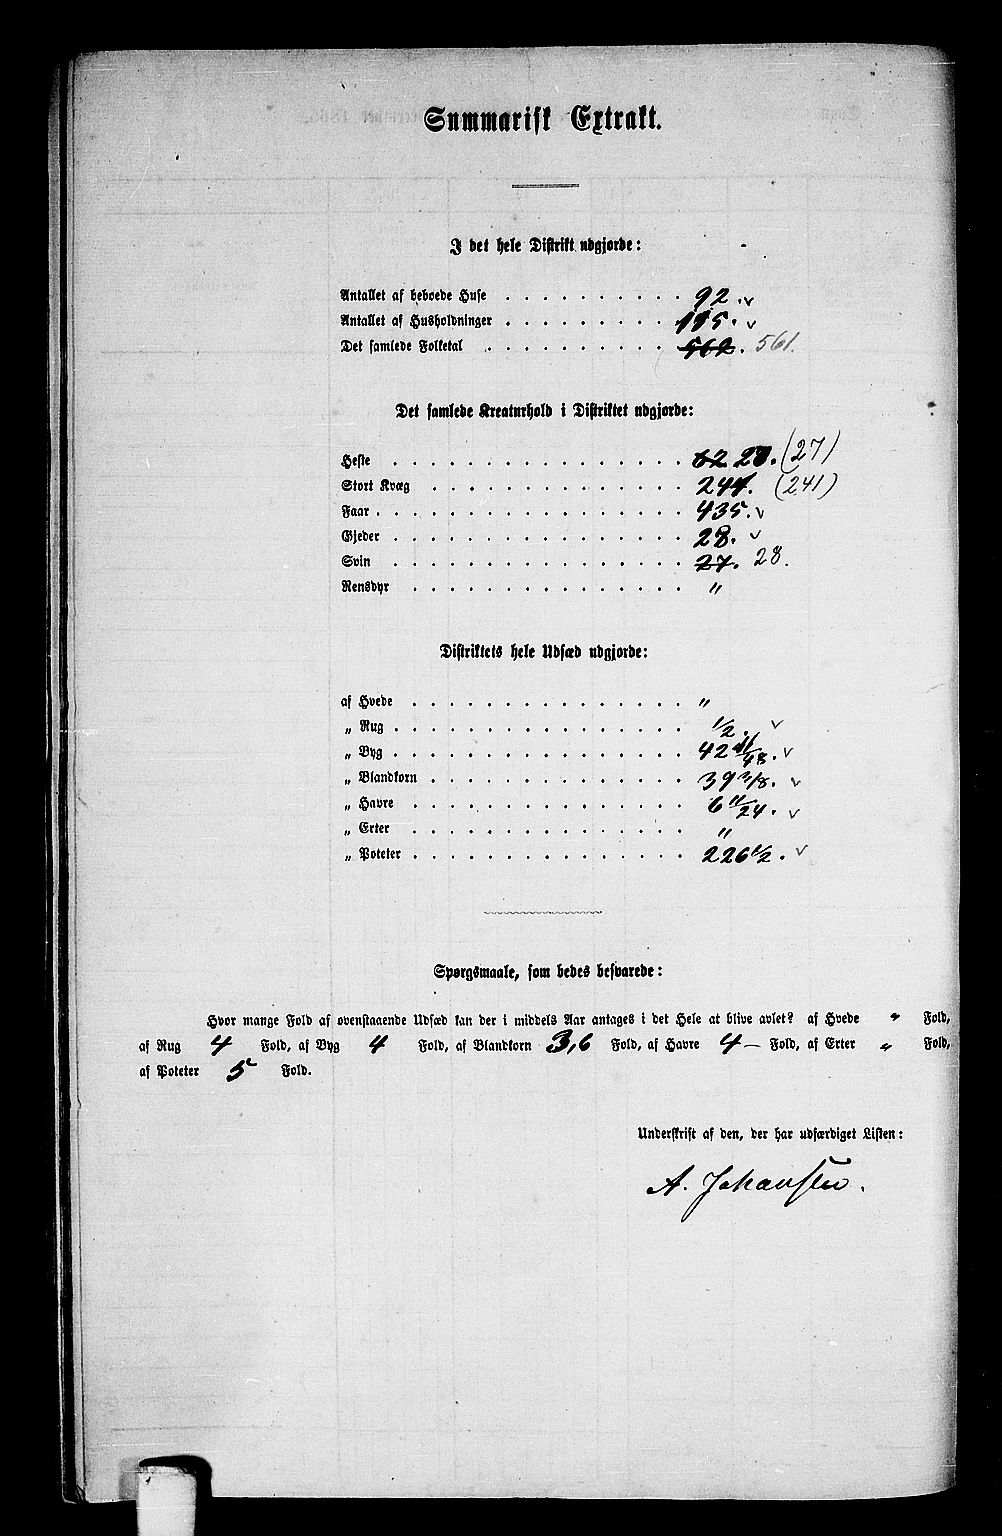 Summarisk Extrakt.
I det hele Distrikt udgjorde:
Antallet af beboede Huse . . . . . . . . . . 92. v
Antallet af Husholdninger . . . . . . . . . . 115. v
Det samlede Folketal . . . . . . . . . . 562. 561.
Det samlede Kreaturhold i Distriktet udgjorde:
Heste . . . . . . . . . . . . . . . (27)
Stort Kvæg . . . . . . . . . . . . . 244. (241)
Faar . . . . . . . . . . . . . . . . 435. v
Gjeder . . . . . . . . . . . . . . . 28. v
Svin . . . . . . . . . . . . . . . 27. 28.
Rensdyr . . . . . . . . . . . . . . "
Distriktets hele Udsæd udgjorde:
af Hvede . . . . . . . . . . . . . . "
„ Rug . . . . . . . . . . . . . . . 1/2. v
„ Byg . . . . . . . . . . . . . . . 42 11/48. v
„ Blandkorn . . . . . . . . . . . . . 39 3/8. v
„ Havre . . . . . . . . . . . . . . 6 11/24. v
„ Erter . . . . . . . . . . . . . . "
„ Poteter . . . . . . . . . . . . . . 226 1/2. v
Spørgsmaale, som bedes besvarede:
Hvor mange Fold af ovenstaaende Udsæd kan der i middels Aar antages i det Hele at blive avlet? af Hvede " Fold,
af Rug 4 Fold, af Byg 4 Fold, af Blandkorn 3,6 Fold, af Havre 4 — Fold, af Erter " Fold,
af Poteter 5 Fold.
Underskrift af den, der har udfærdiget Listen:
A. Johansen.